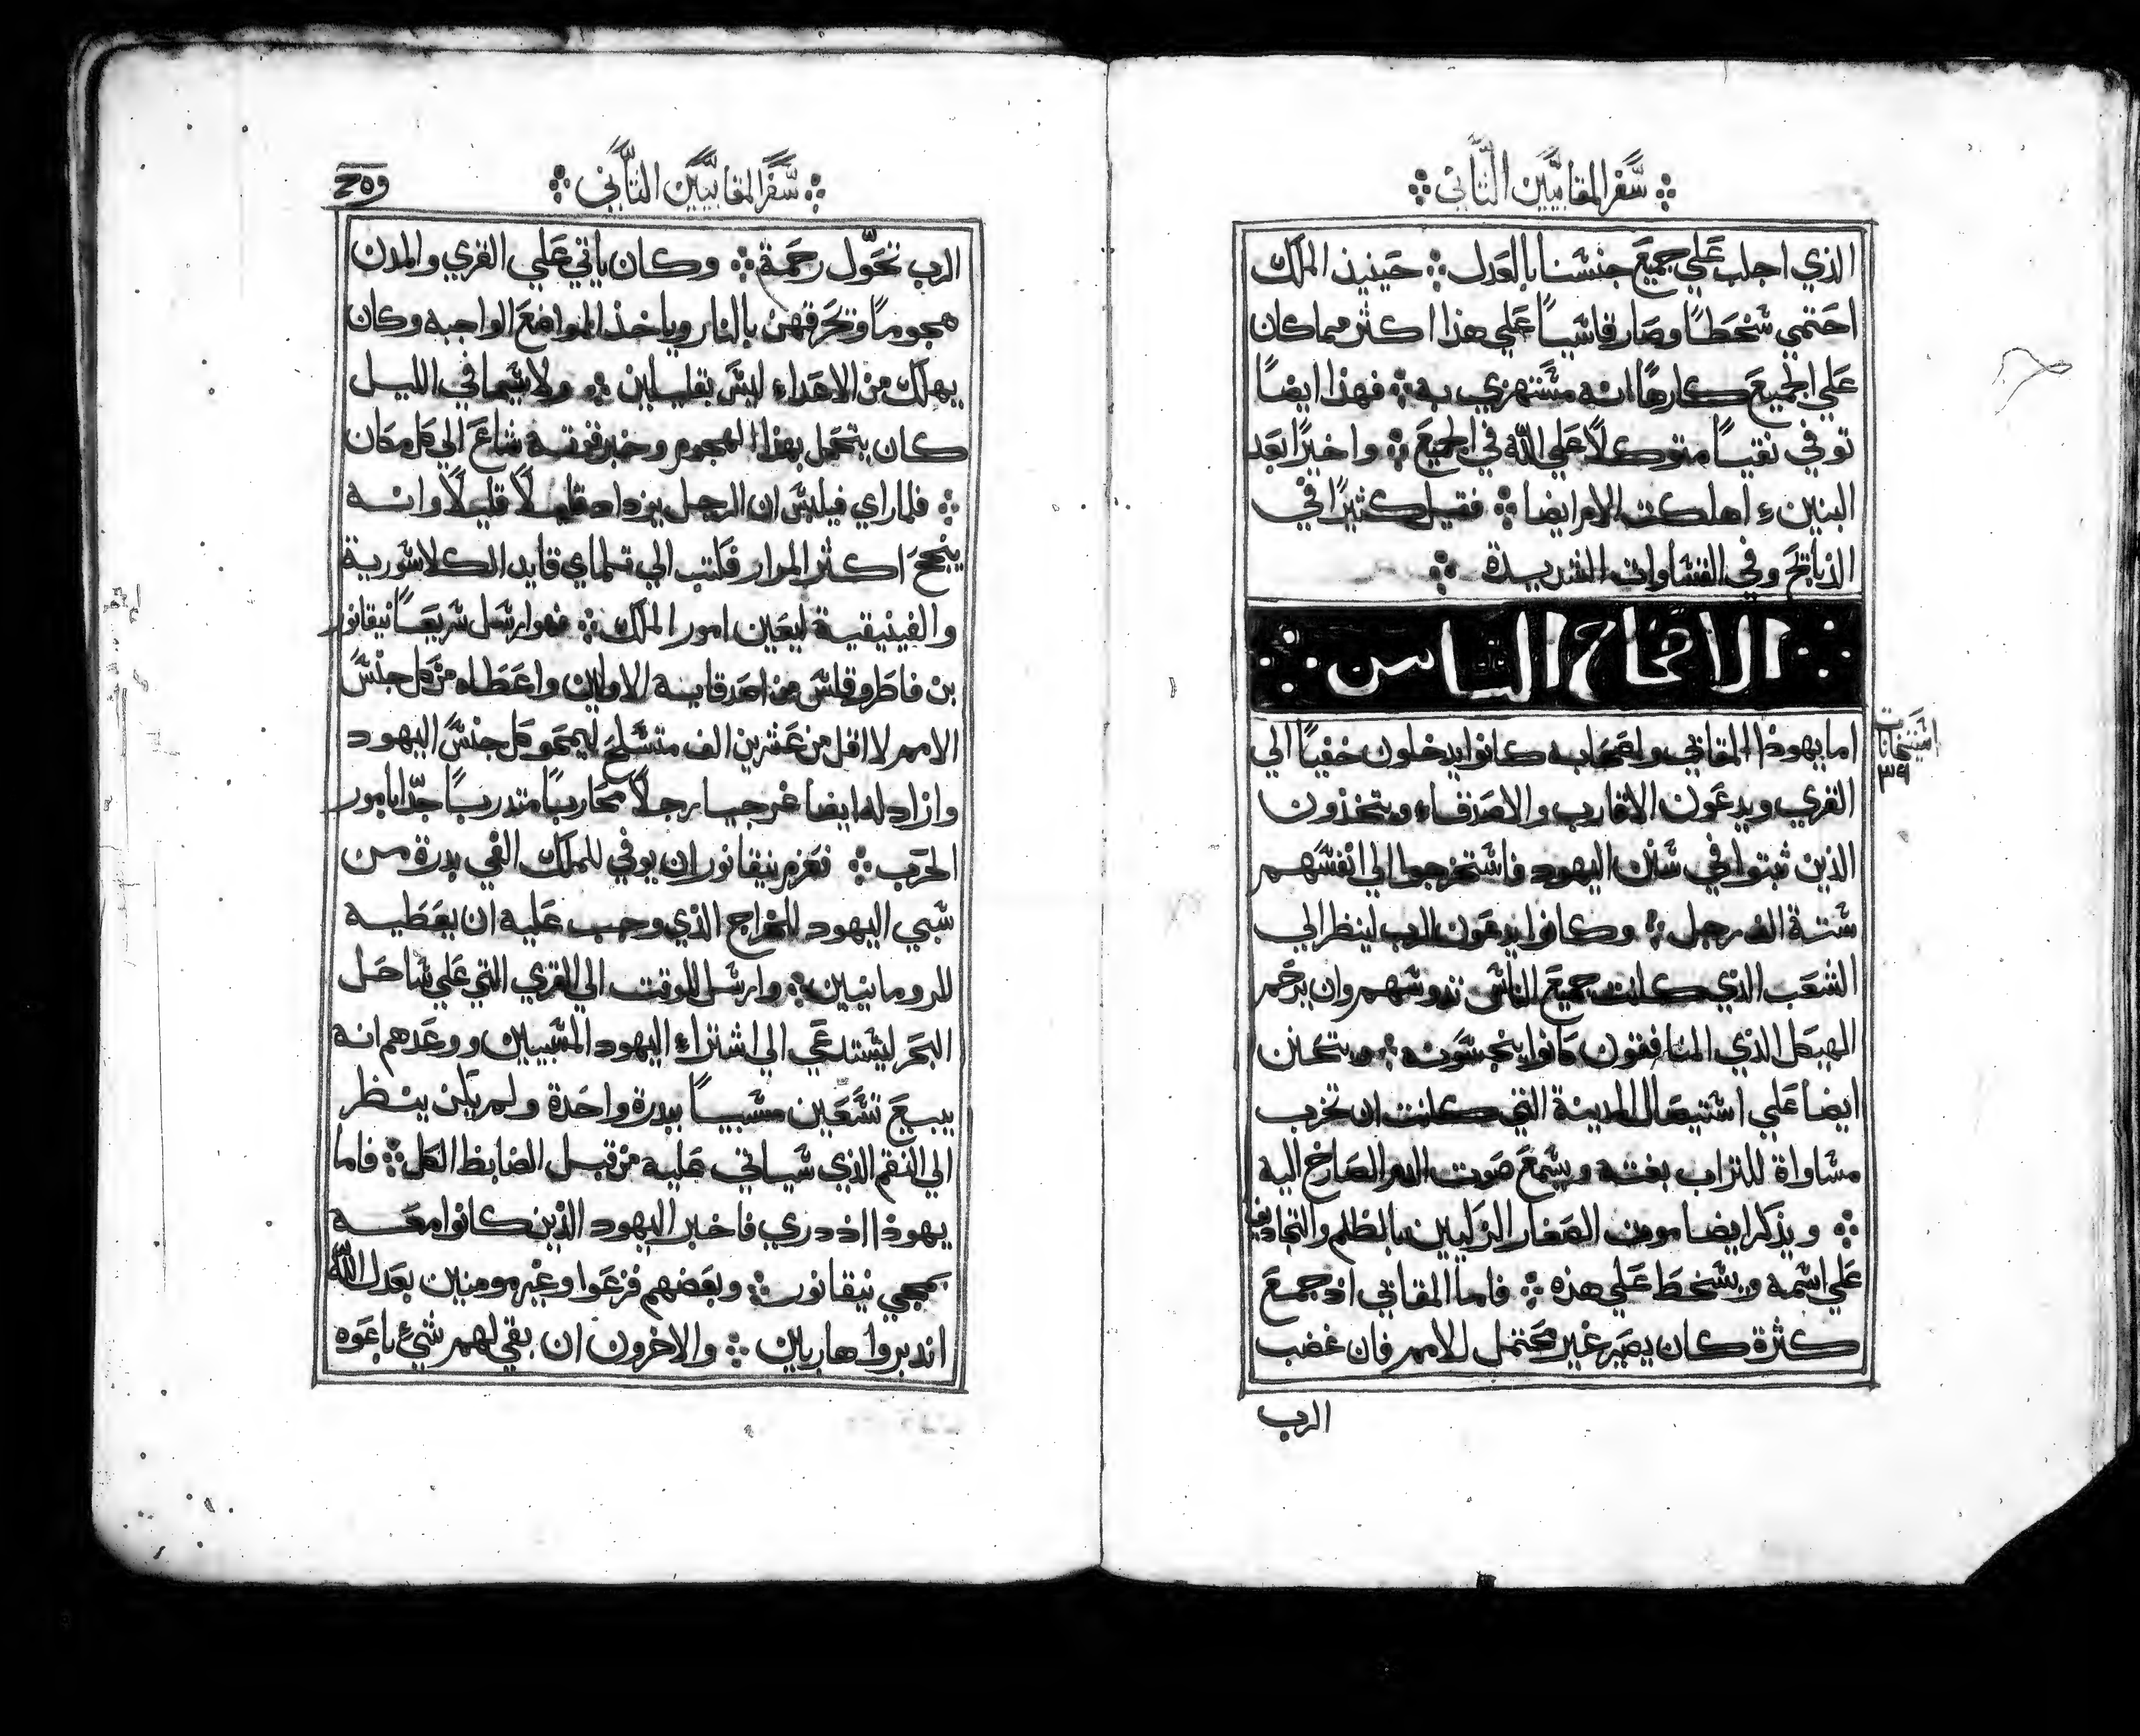 سفر المقابيين الثاني
الذي اجلب علي جميع جنسنا بالعدل ܀ حينيذ الملك
احتمي سخطًا وصار قاسيًا علي هذا اكثر مما كان
علي الجميع كارهًا انه مستهزي به ܀ فهذا ايضًا
توفي نقيًا متوكلًا علي الله في الجميع ܀ واخيرًا بعد
البنين اهلكت الام ايضا ܀ فقيل كثيرًا في
الذبايح وفي القساوات الشديدة ܀
الاصحاح الثامن
اما يهوذا المقابي واصحابه كانوا يدخلون خفيًا الي
القري ويدعون الاقارب والاصدقاء ويتخذون
الذين ثبتوا في سنن اليهود فاستخرجوا الي انفسهم
ستة الف رجل ܀ وكانوا يدعون الرب لينظر الي
الشعب الذي كانت جميع الناس تدوسهم وان يرحم
الهيكل الذي المنافقون كانوا ينجسونه ܀ ويتحنن
ايضا علي استيصال المدينة التي كانت ان تخرب
مساواة للتراب بغتة ويسمع صوت الدم الصارخ اليه
܀ ويذكر ايضا موت الصغار الزكيين بالظلم والتجاديف
علي اسمه ويسخط علي هذه ܀ فاما المقابي اذ جمع
كثرة كان يصير غير محتمل للامم فان غضب
الرب
استخانات
٣٩
سفر المقابيين الثاني
الرب تحول رحمة ܀ وكان ياتي علي القري والمدن
هجومًا وتحرقهن بالنار وياخذ المواضع الواجبه وكان
يهلك من الاعداء ليس بقليلين ܀ ولا سيما في الليل
كان يتحمل بهذا الهجوم وخبر قوته شاع الي كل مكان
܀ فلما راي فيلبس ان الرجل يزداد قليلًا قليلًا وانه
ينجح اكثر المرار فكتب الي تلماي قايد الكلاسورية
والفينيقية ليعين امور الملك ܀ فهو ارسل سريعًا نيقانور
بن فاطروقلس من احد قاينه الاولين واعطاه من كل جنس
الامم لا اقل من عشرين الف متسلح ليمحو كل جنس اليهود
وازاد له ايضا غرجيا رجلًا محاربًا متدربًا جدًا بامور
الحرب ܀ فعزم نيقانور ان يوفي للملك الفي بدرة من
سبي اليهود للخراج الذي وجب عليه ان يعطيه
للرومانيين ܀ وارسل للوقت الي القري التي علي ساحل
البحر ليستدعي الي اشتراء اليهود المسبيين ووعدهم انه
يبيع تسعين مسبيًا ببدرة واحدة ولم يكن ينظر
الي النقم الذي سياتي عليه من قبل الضابط الكل ܀ فاما
يهوذا اذ دري فاخبر اليهود الذين كانوا معه
بمجي نيقانور ܀ وبعضهم فزعوا وغير مومنين بعدل الله
اندبروا هاربين ܀ والاخرون ان بقي لهم شيء باعوه